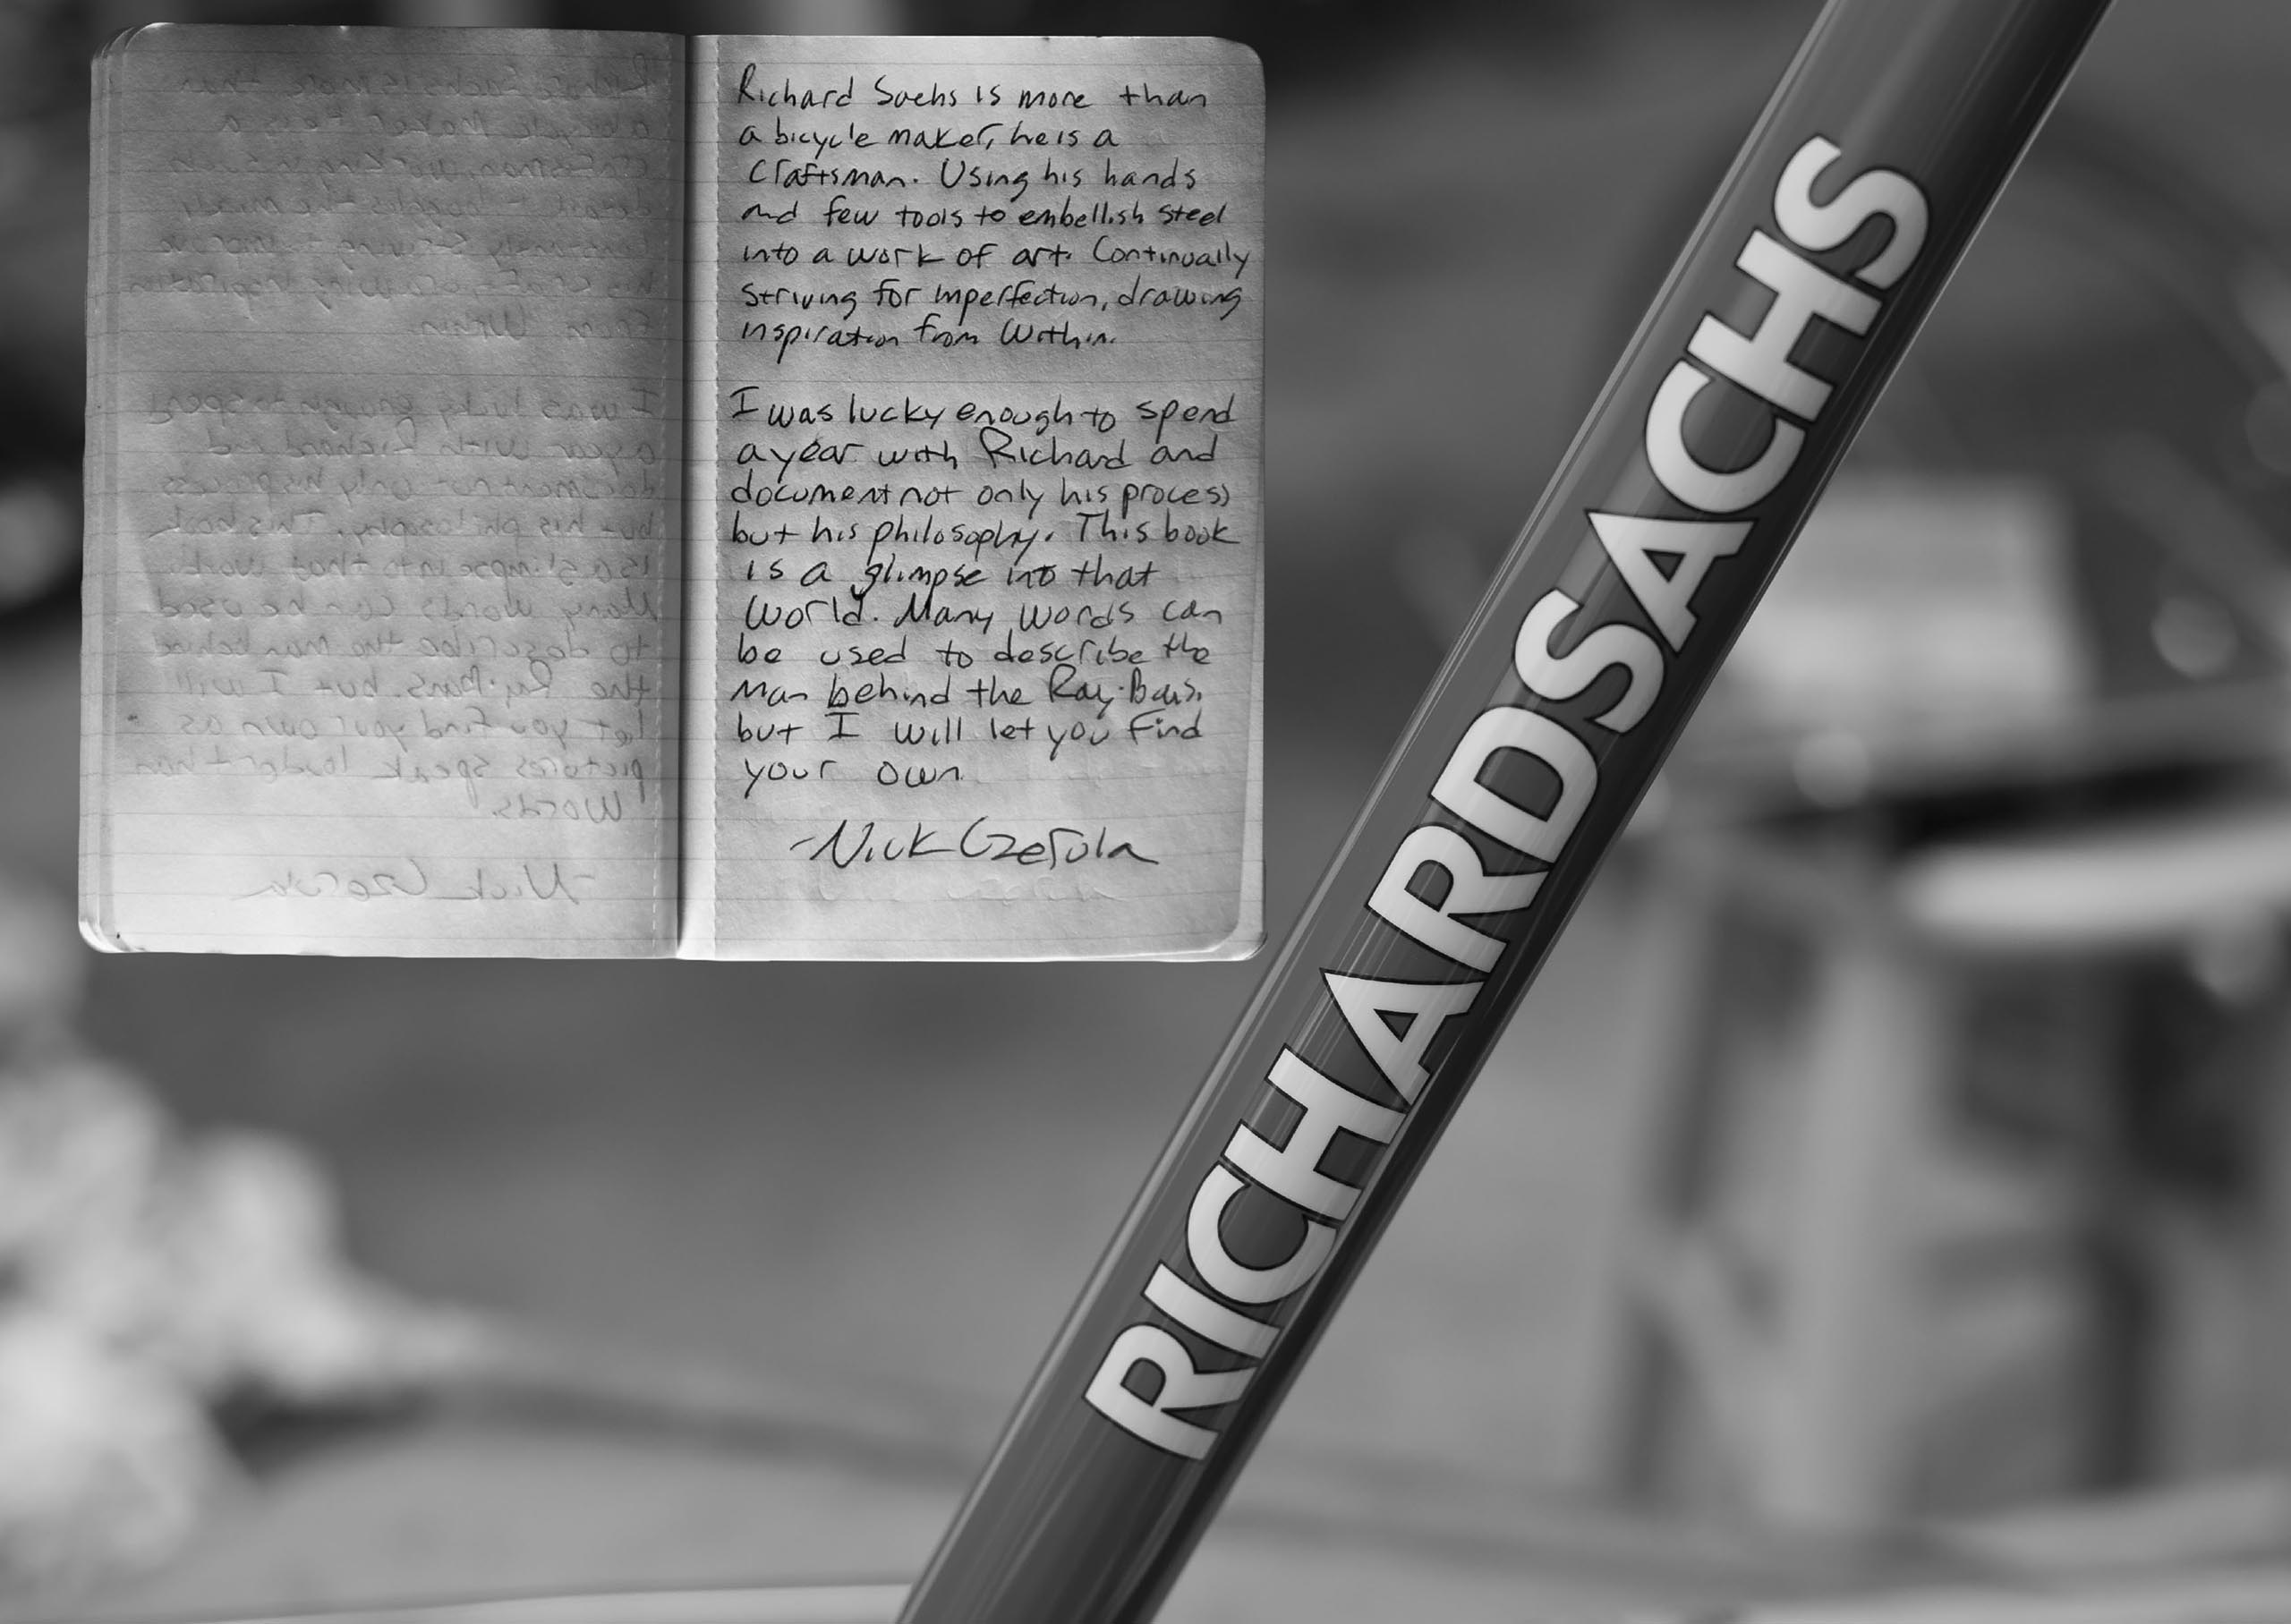 Richard Sachs is more than
a bicycle maker, he is a
craftsman. Using his hands
and few tools to embellish steel
into a work of art. Continually
striving for imperfection, drawing
inspiration from within.
I was lucky enough to spend
a year with Richard and
document not only his process
but his philosophy. This book
is a glimpse into that
world. Many words can
be used to describe the
man behind the Ray-Bans,
but I will let you find
your own.
-Nick Czerula
RICHARDSACHS